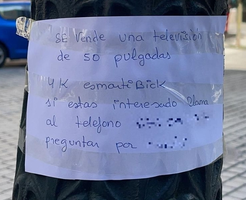 SE Vende una television
de 50 pulgadas
4K esmartiBick
si estas interesado llama
al telefono
preguntar por